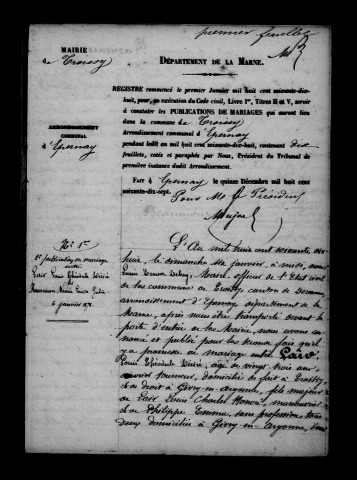 premier feuillet
MAIRIE
de Troissy
DÉPARTEMENT DE LA MARNE.
REGISTRE commencé le premier Janvier mil huit cent soixante-dix-
huit, pour, en exécution du Code civil, Livre Ier, Titres II et V, servir
à constater les PUBLICATIONS DE MARIAGES qui auront lieu
dans la commune de Troissy
Arrondissement communal d'Epernay
pendant ledit an mil huit cent soixante-dix-huit, contenant dix
feuillets, cotés et paraphés par Nous, Président du Tribunal de
première instance dudit Arrondissement.
ARRONDISSEMENT
COMMUNAL
d'Epernay
FAIT à Epernay le quinze Décembre mil huit cent
soixante-dix-sept.
Pour Mr le Président
No 1er
2e publication de mariage
entre
6 janvier 1878
L'An mil huit cent soixante dix
huit, le dimanche six janvier, à midi, nous
Maire, officier de l'Etat civil
de la commune de Troissy, canton de Dormans,
arrondissement d'Epernay, département de la
Marne, après nous être transporté devant la
porte d'entrée de la Mairie, nous avons an-
noncé et publié pour la seconde fois qu'il
y a promesse de mariage entre
Louis Théodule Désiré, âgé de vingt trois ans,
domicilié de fait à Troissy,
et de droit à Givry-en-Argonne, fils majeur
de Louis Charles Honoré, manouvrier
et de Philippe Emma, sans profession, tous
deux domiciliés à Givry-en-Argonne, d'une